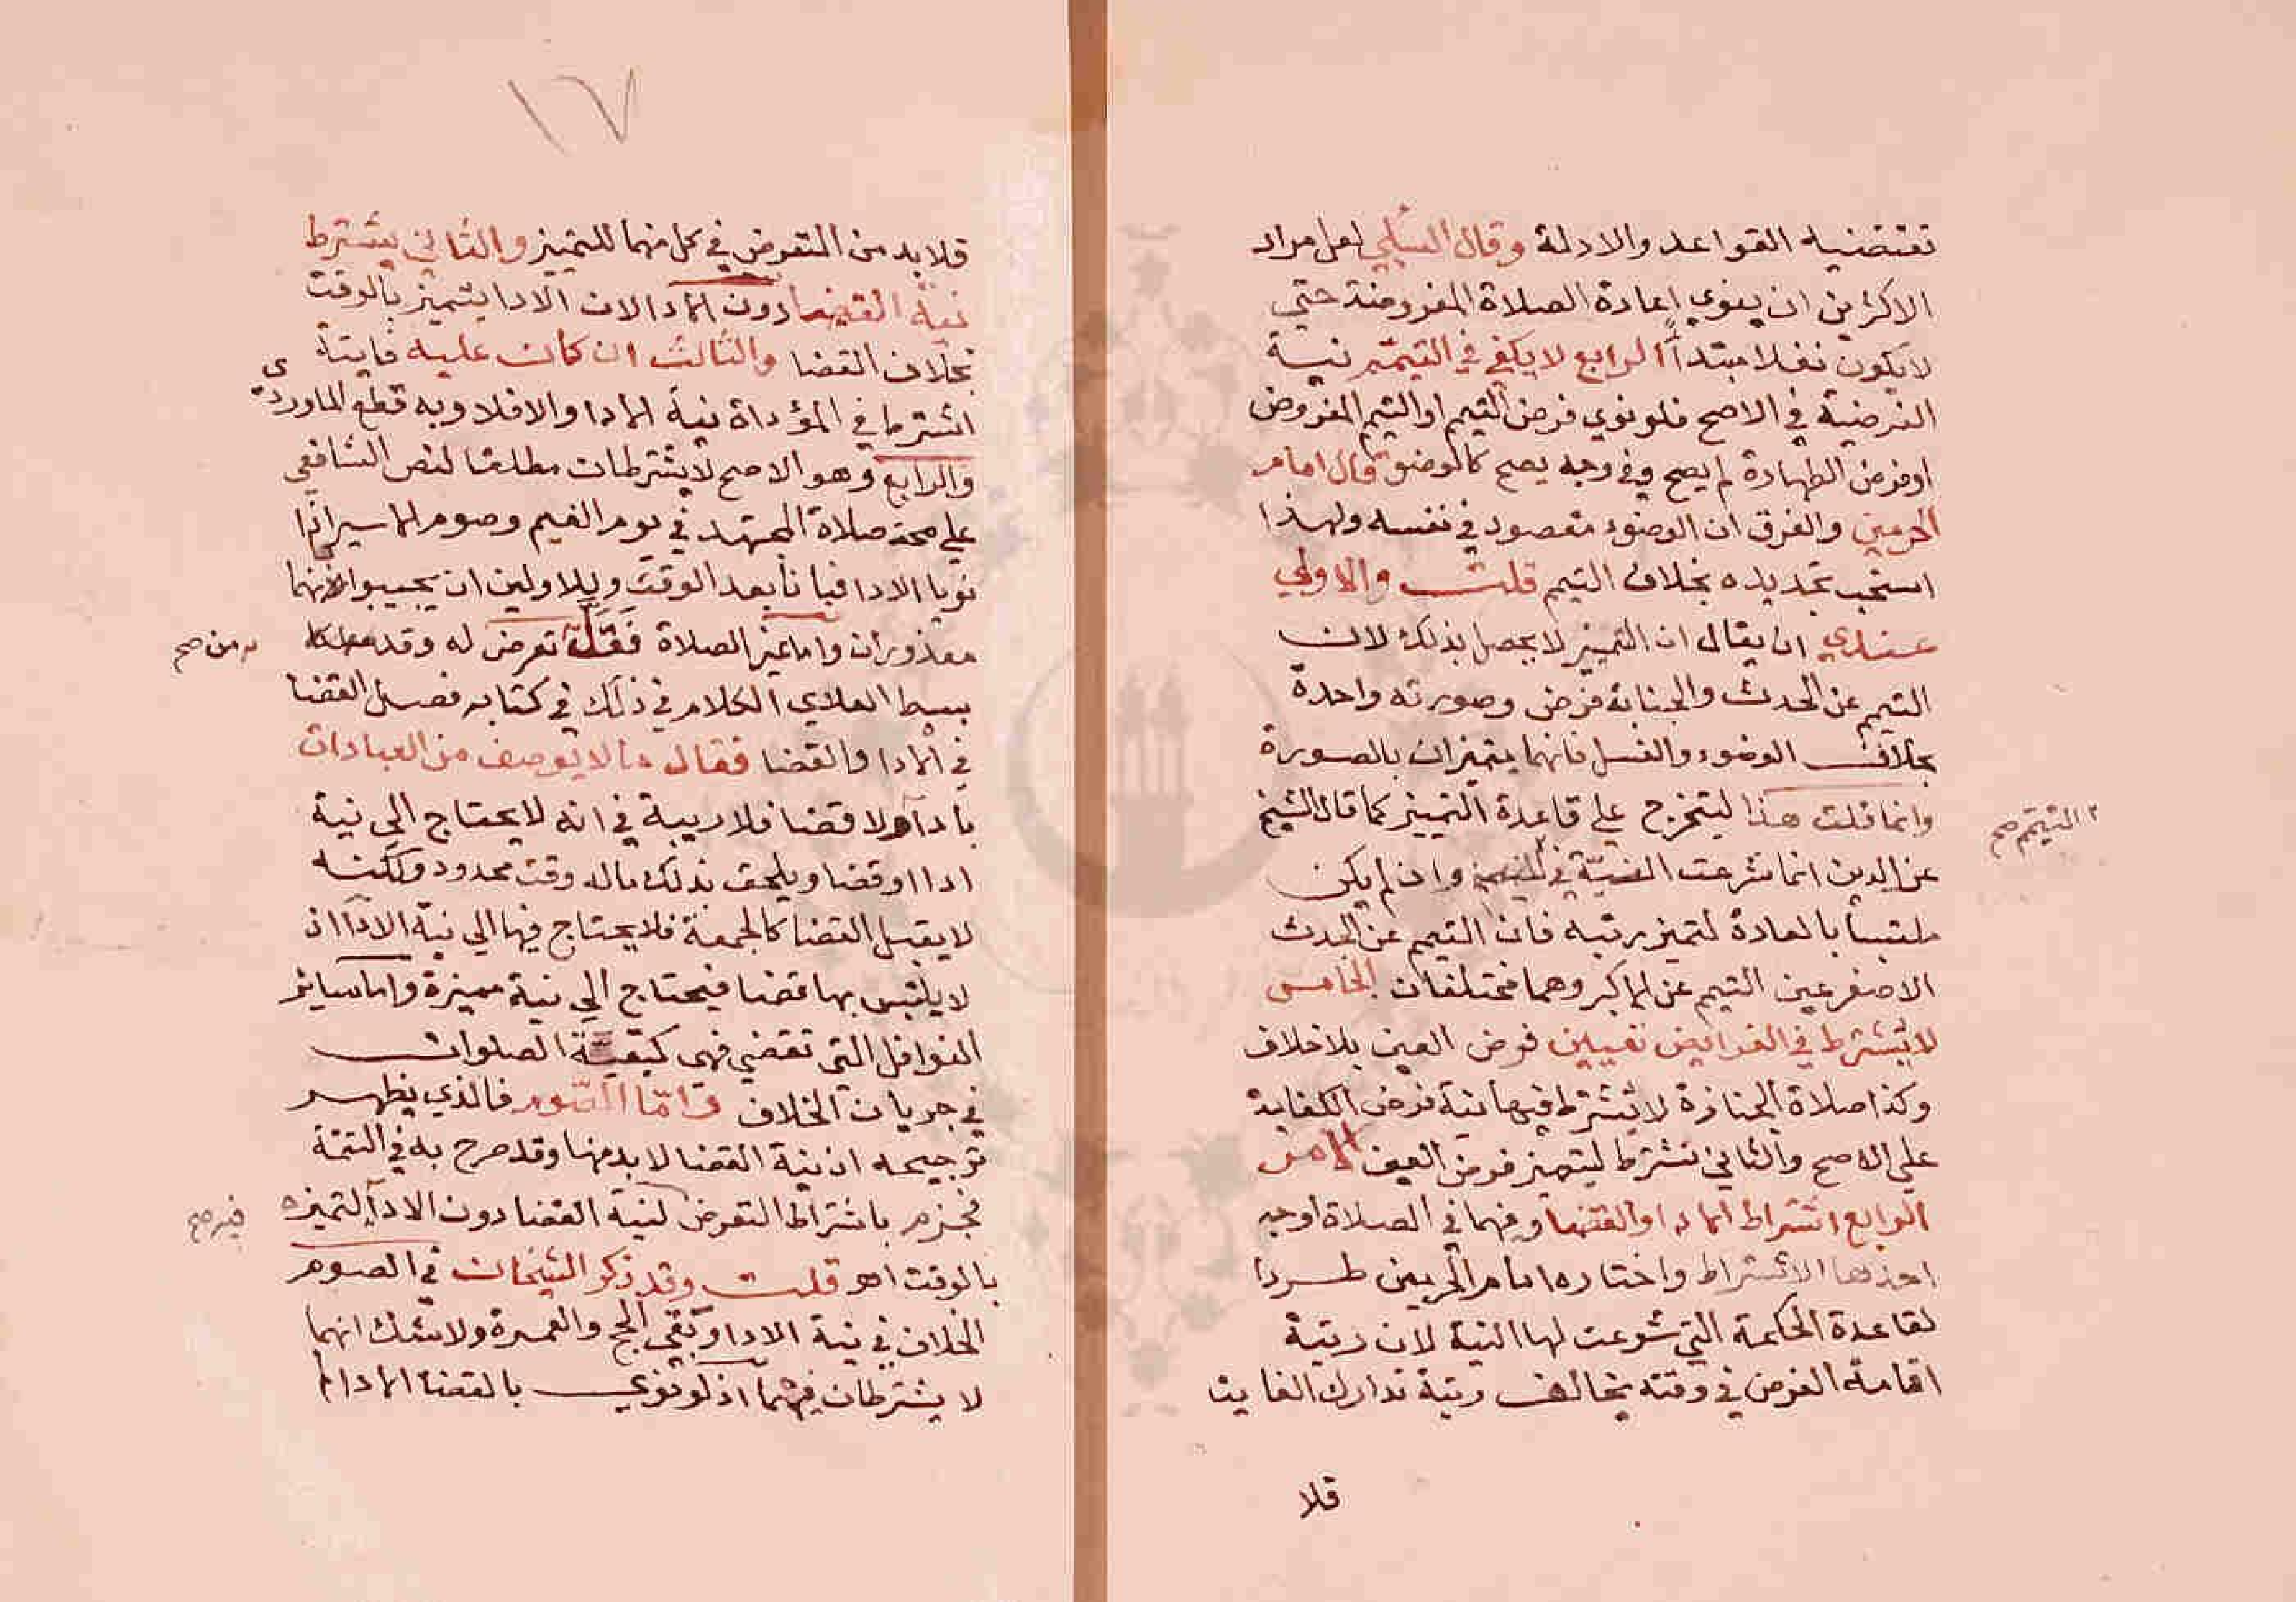 تقتضيه القواعد والادلة وقال السبكي لعل مراد
الاكثرين ان ينوي اعادة الصلاة المفروضة حتى
لا يكون نفلا مبتدأ الرابع لا يكفي في التيمم نية
الفرضية في الاصح فلو نوي فرض التيمم او التيمم المفروض
او فرض الطهارة لم يصح وفي وجه يصح كالوضوء قال امام
الحرمين والفرق ان الوضوء مقصود في نفسه ولهذا
استحب تجديده بخلاف التيمم قلت والاولي
عندي ان يقال ان التمييز لا يحصل بذلك لان
التيمم عن الحدث والجنابة فرض وصورته واحدة
بخلاف الوضوء والغسل فانهما يتميزان بالصورة
وانما قلت هذا ليتخرج علي قاعدة التمييز كما قال الشيخ
عز الدين انما شرعت النية في التيمم وان لم يكن
التيمم صح
ملتبسا بالعادة لتميز رتبه فان التيمم عن الحدث
الاصغر عين التيمم عن الاكبر وهما مختلفان الخامس
لا يشترط في الفرايض تعيين فرض العين بلا خلاف
وكذا صلاة الجنازة لا تشترط فيها نية فرض الكفاية
علي الاصح والثاني تشترط ليتميز فرض العين الامر
الرابع اشتراط الادا والقضا وفيهما في الصلاة اوجه
احدها الاشتراط واختاره امام الحرمين طردا
لقاعدة الحكمة التي شرعت لها النية لان رتبة
اقامة الفرض في وقته يخالف رتبة تدارك الفايت
فلا
١٧
فلا بد من التعرض في كل منهما للتمييز والثاني يشترط
نية القضا دون الادا لان الادا يتميز بالوقت
بخلاف القضا والثالث ان كان عليه فايتة
اشترط في المؤداة نية الادا والا فلا وبه قطع الماوردي
والرابع وهو الاصح لا يشترطان مطلقا لنص الشافعي
علي صحة صلاة المجتهد في يوم الغيم وصوم الاسير اذا
نويا الادا فبانا بعد الوقت وللاولين ان يجيبوا بانهما
معذوران واما غير الصلاة فقل تعرض له وقد
من صح
بسط العلاي الكلام في ذلك في كتابه فصل القضا
في الادا والقضا فقال ما لا يوصف من العبادات
بادا ولا قضا فلا ريبة في انه لا يحتاج الي نية
ادا او قضا ويلحق بذلك ماله وقت محدود ولكنه
لا يقبل القضا كالجمعة فلا يحتاج فيها الي نية الادا اذ
لا يلتبس بها قضا فيحتاج الي نية مميزة واما ساير
النوافل التي تقضي فهي كبقية الصلوات
في جريان الخلاف واما الصوم فالذي يظهر
ترجيحه ان نية القضا لا بد منها وقد صرح به في التتمة
فجزم باشتراط التعرض لنية القضا دون الادا لتميزه
بالوقت اهو قلت وقد ذكر الشيخان في الصوم
الخلاف في نية الادا وبقي الحج والعمرة ولا شك انهما
لا يشترطان فيهما اذ لو نوي بالقضا الادا